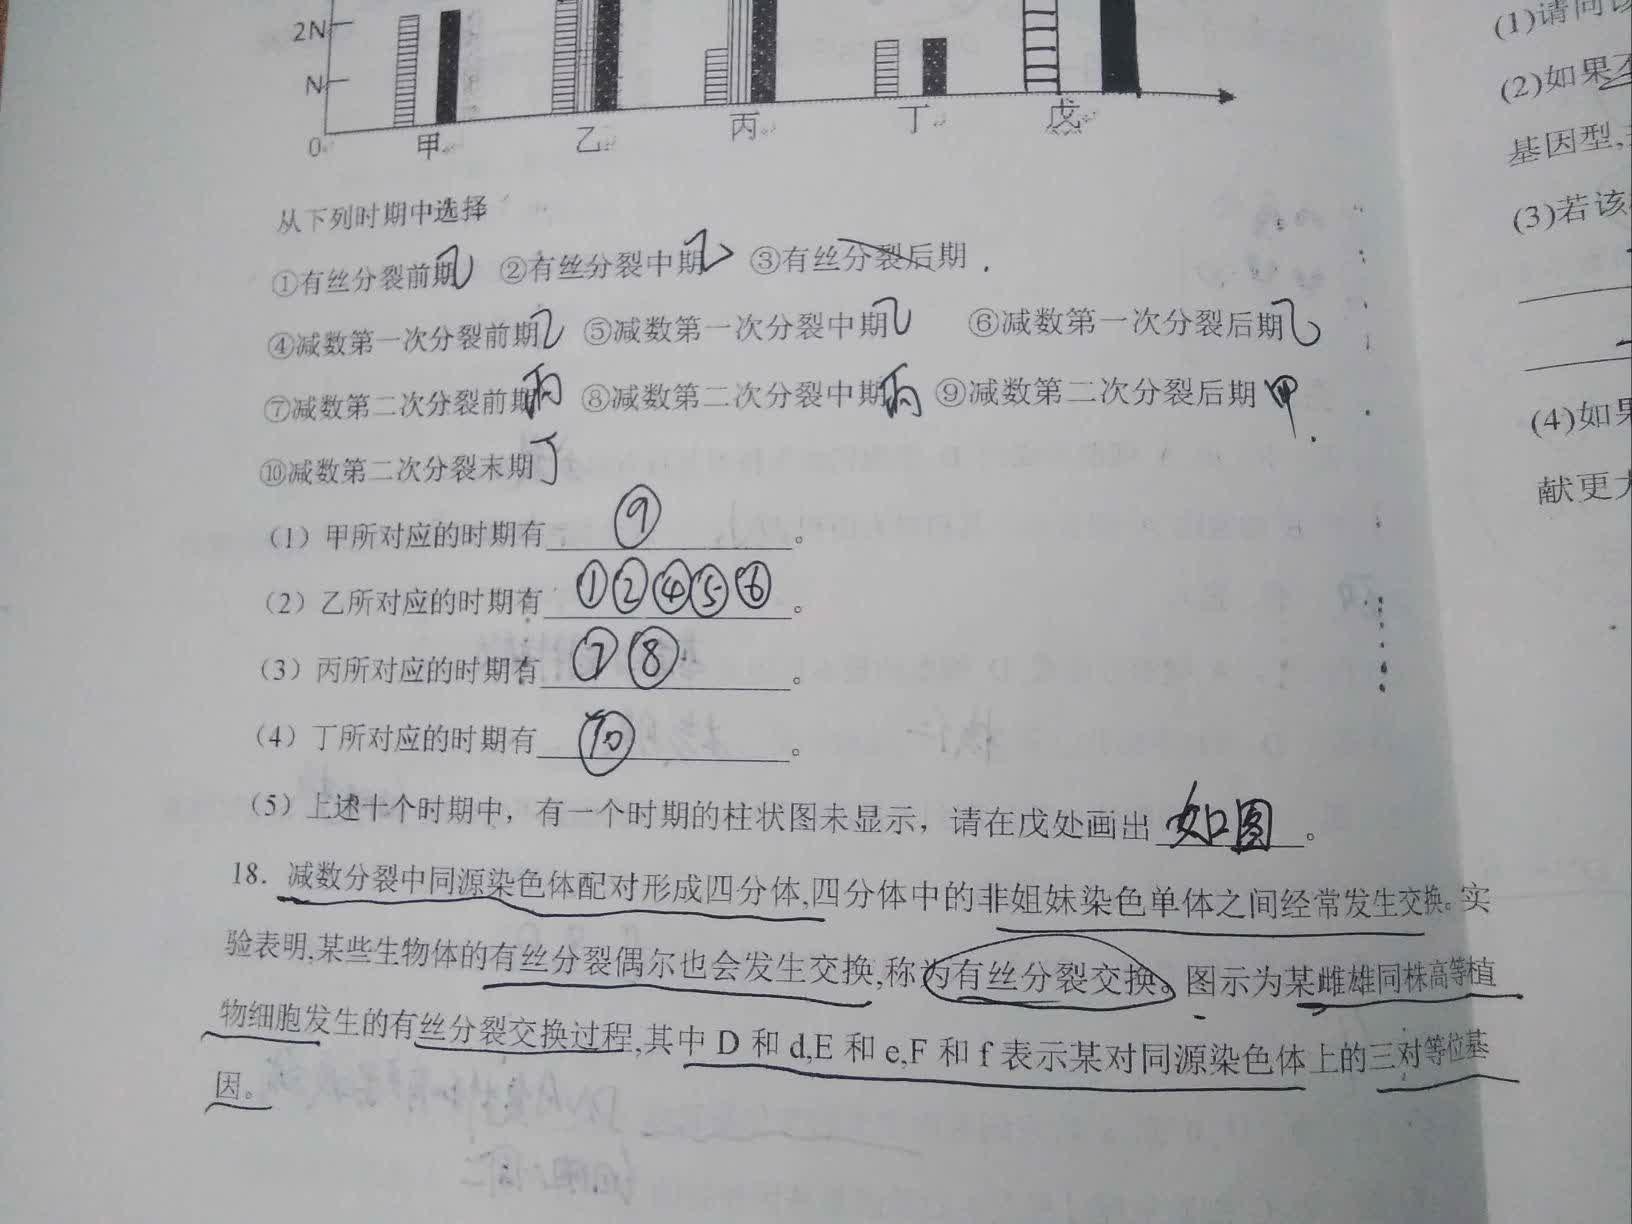 2N
N
0
甲
乙
丙
丁
戊
从下列时期中选择
①有丝分裂前期乙 ②有丝分裂中期乙 ③有丝分裂后期
④减数第一次分裂前期乙 ⑤减数第一次分裂中期乙 ⑥减数第一次分裂后期乙
⑦减数第二次分裂前期丙 ⑧减数第二次分裂中期丙 ⑨减数第二次分裂后期 甲
⑩减数第二次分裂末期丁
(1)甲所对应的时期有 ⑨ 。
(2)乙所对应的时期有 ①②④⑤⑥ 。
(3)丙所对应的时期有 ⑦⑧ 。
(4)丁所对应的时期有 ⑩ 。
(5)上述十个时期中，有一个时期的柱状图未显示，请在戊处画出 如图 。
18. 减数分裂中同源染色体配对形成四分体,四分体中的非姐妹染色单体之间经常发生交换。实
验表明,某些生物体的有丝分裂偶尔也会发生交换,称为有丝分裂交换。图示为某雌雄同株高等植
物细胞发生的有丝分裂交换过程,其中 D 和 d,E 和 e,F 和 f 表示某对同源染色体上的三对等位基
因。
(1)请问该
(2)如果
基因型,
(3)若该
(4)如果
献更大